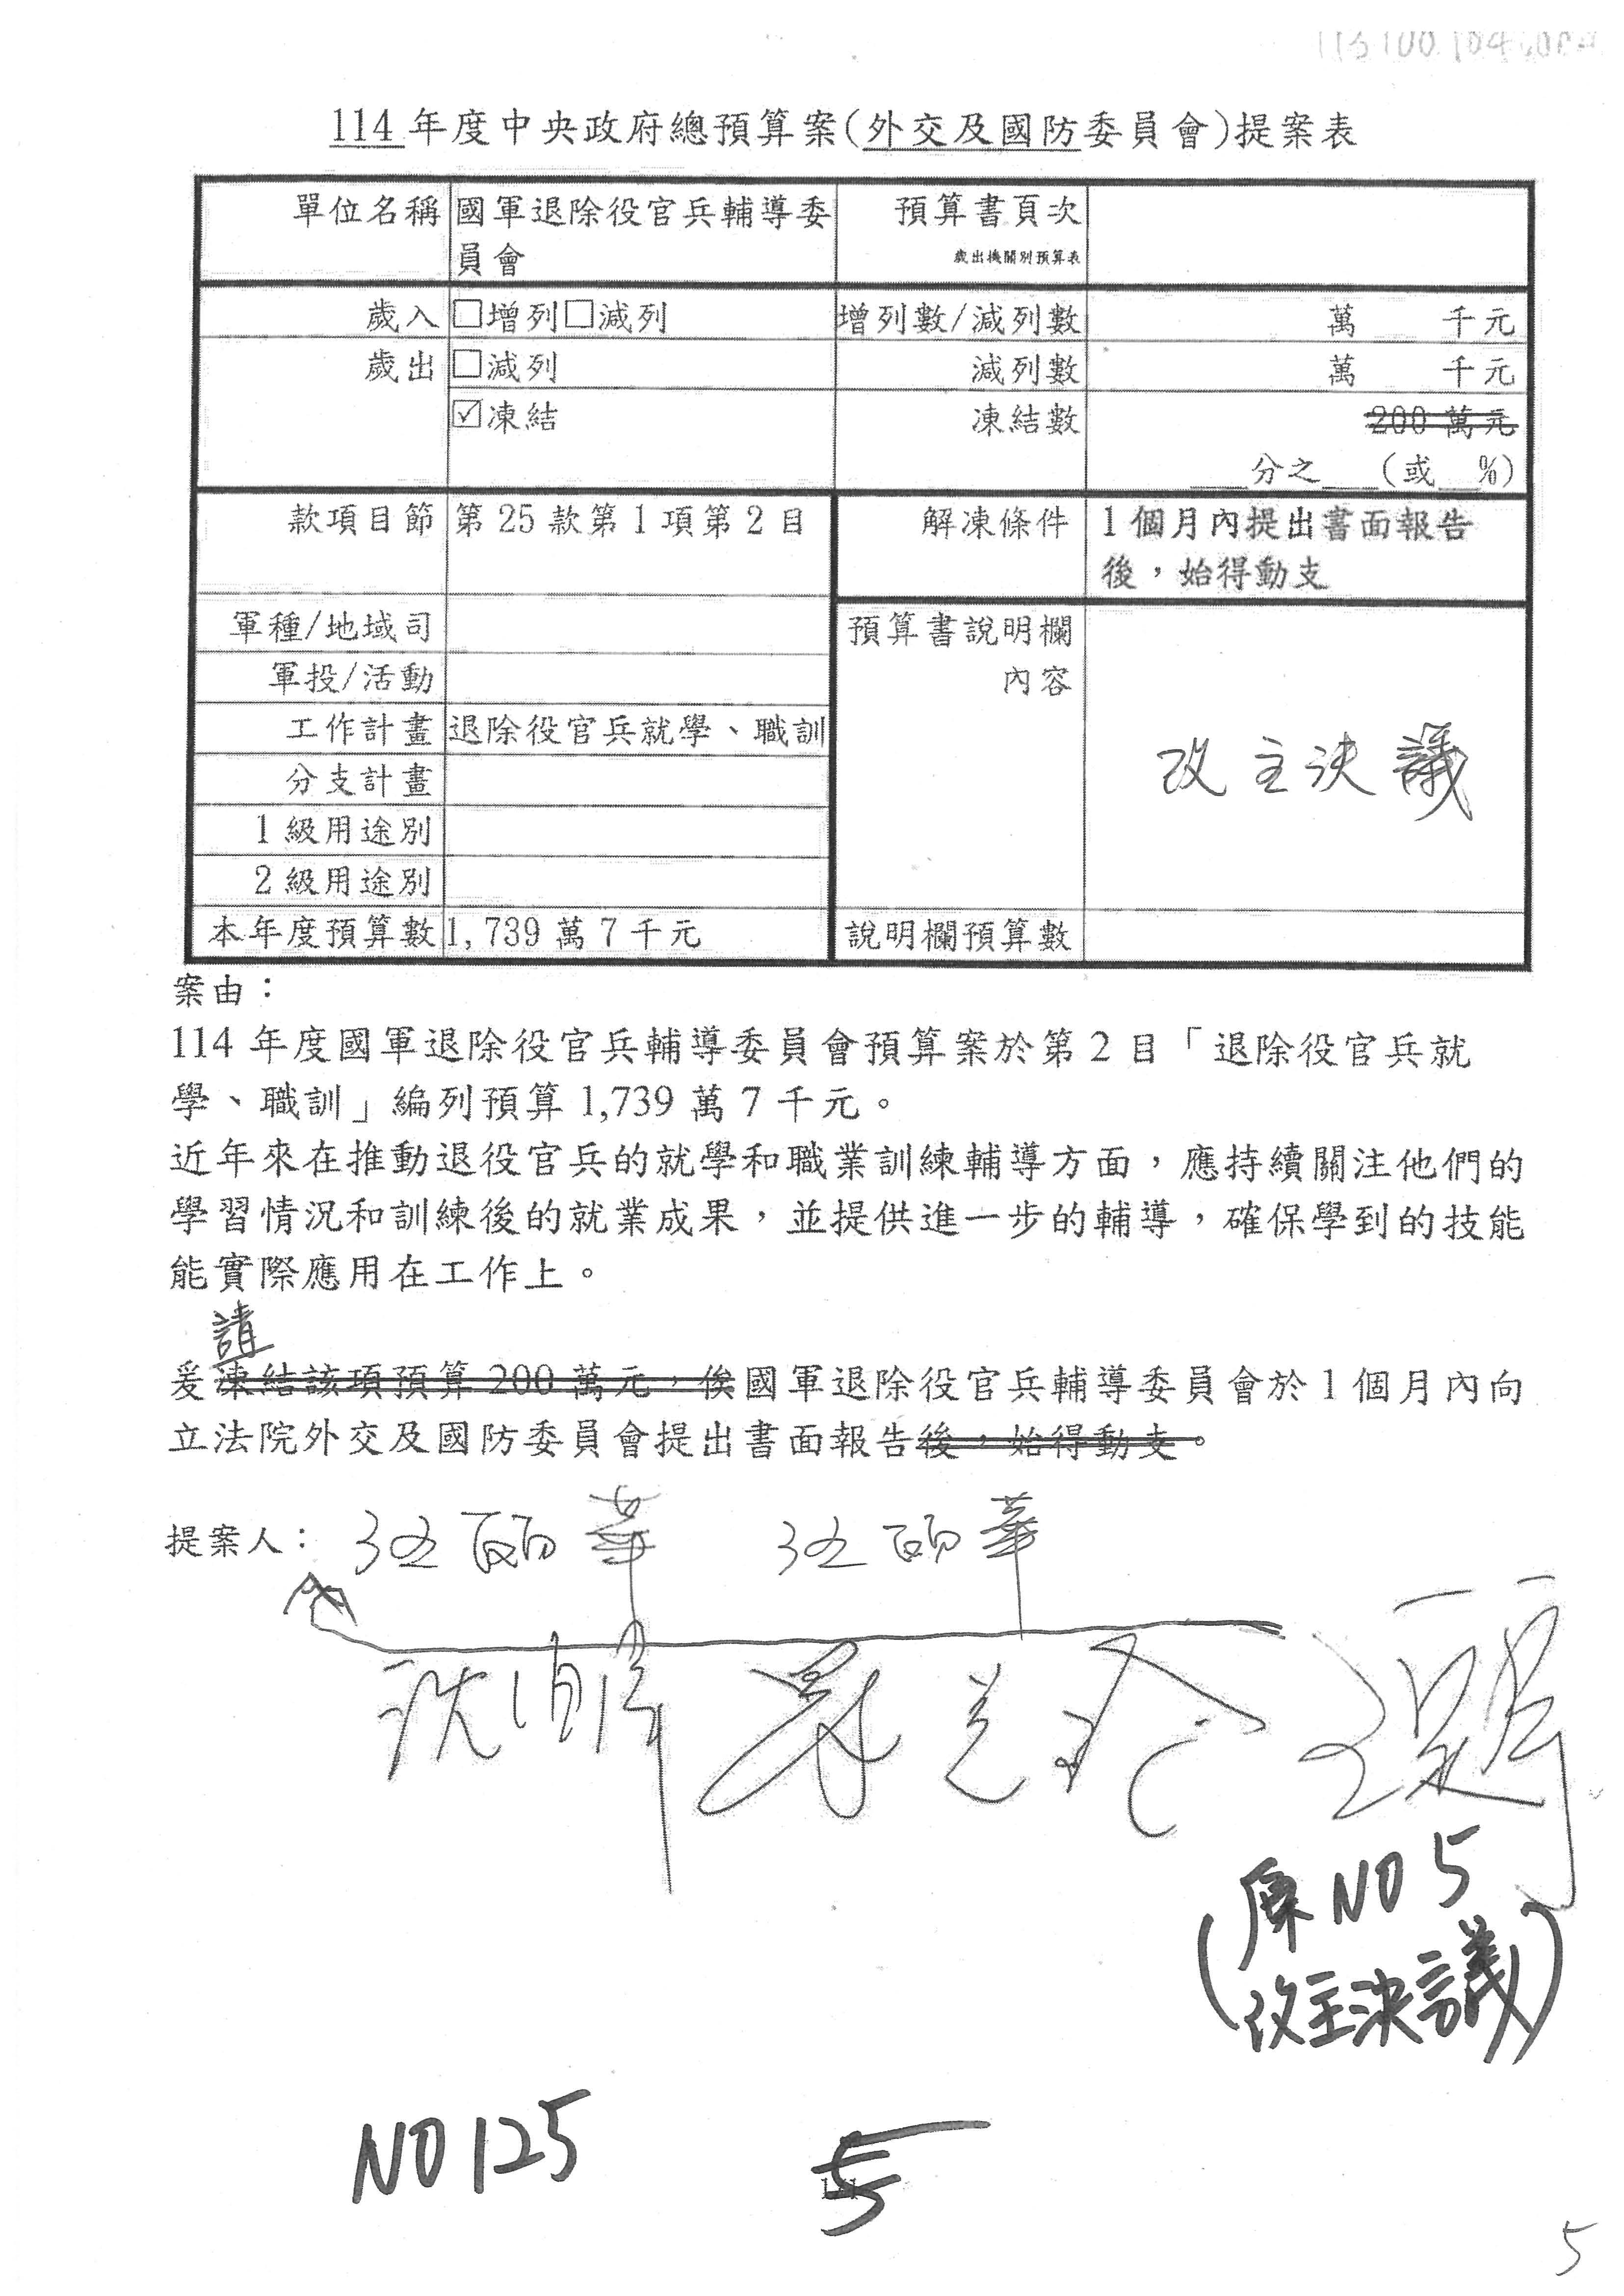 114年度中央政府總預算案(外交及國防委員會)提案表
單位名稱 國軍退除役官兵輔導委員會 預算書頁次
歲出機關別預算表
歲入 □增列□減列 增列數/減列數 萬 千元
歲出 □減列 減列數 萬 千元
☑凍結 凍結數 200萬元
___分之___(或__%)
款項目節 第25款第1項第2目 解凍條件 1個月內提出書面報告
後，始得動支
軍種/地域司 預算書說明欄
軍投/活動 內容
工作計畫 退除役官兵就學、職訓 改主決議
分支計畫
1級用途別
2級用途別
本年度預算數 1,739萬7千元 說明欄預算數
案由：
114年度國軍退除役官兵輔導委員會預算案於第2目「退除役官兵就
學、職訓」編列預算1,739萬7千元。
近年來在推動退役官兵的就學和職業訓練輔導方面，應持續關注他們的
學習情況和訓練後的就業成果，並提供進一步的輔導，確保學到的技能
能實際應用在工作上。
請
爰凍結該項預算200萬元，俟國軍退除役官兵輔導委員會於1個月內向
立法院外交及國防委員會提出書面報告後，始得動支。
提案人：
(原NO5
改主決議)
NO125
5
5